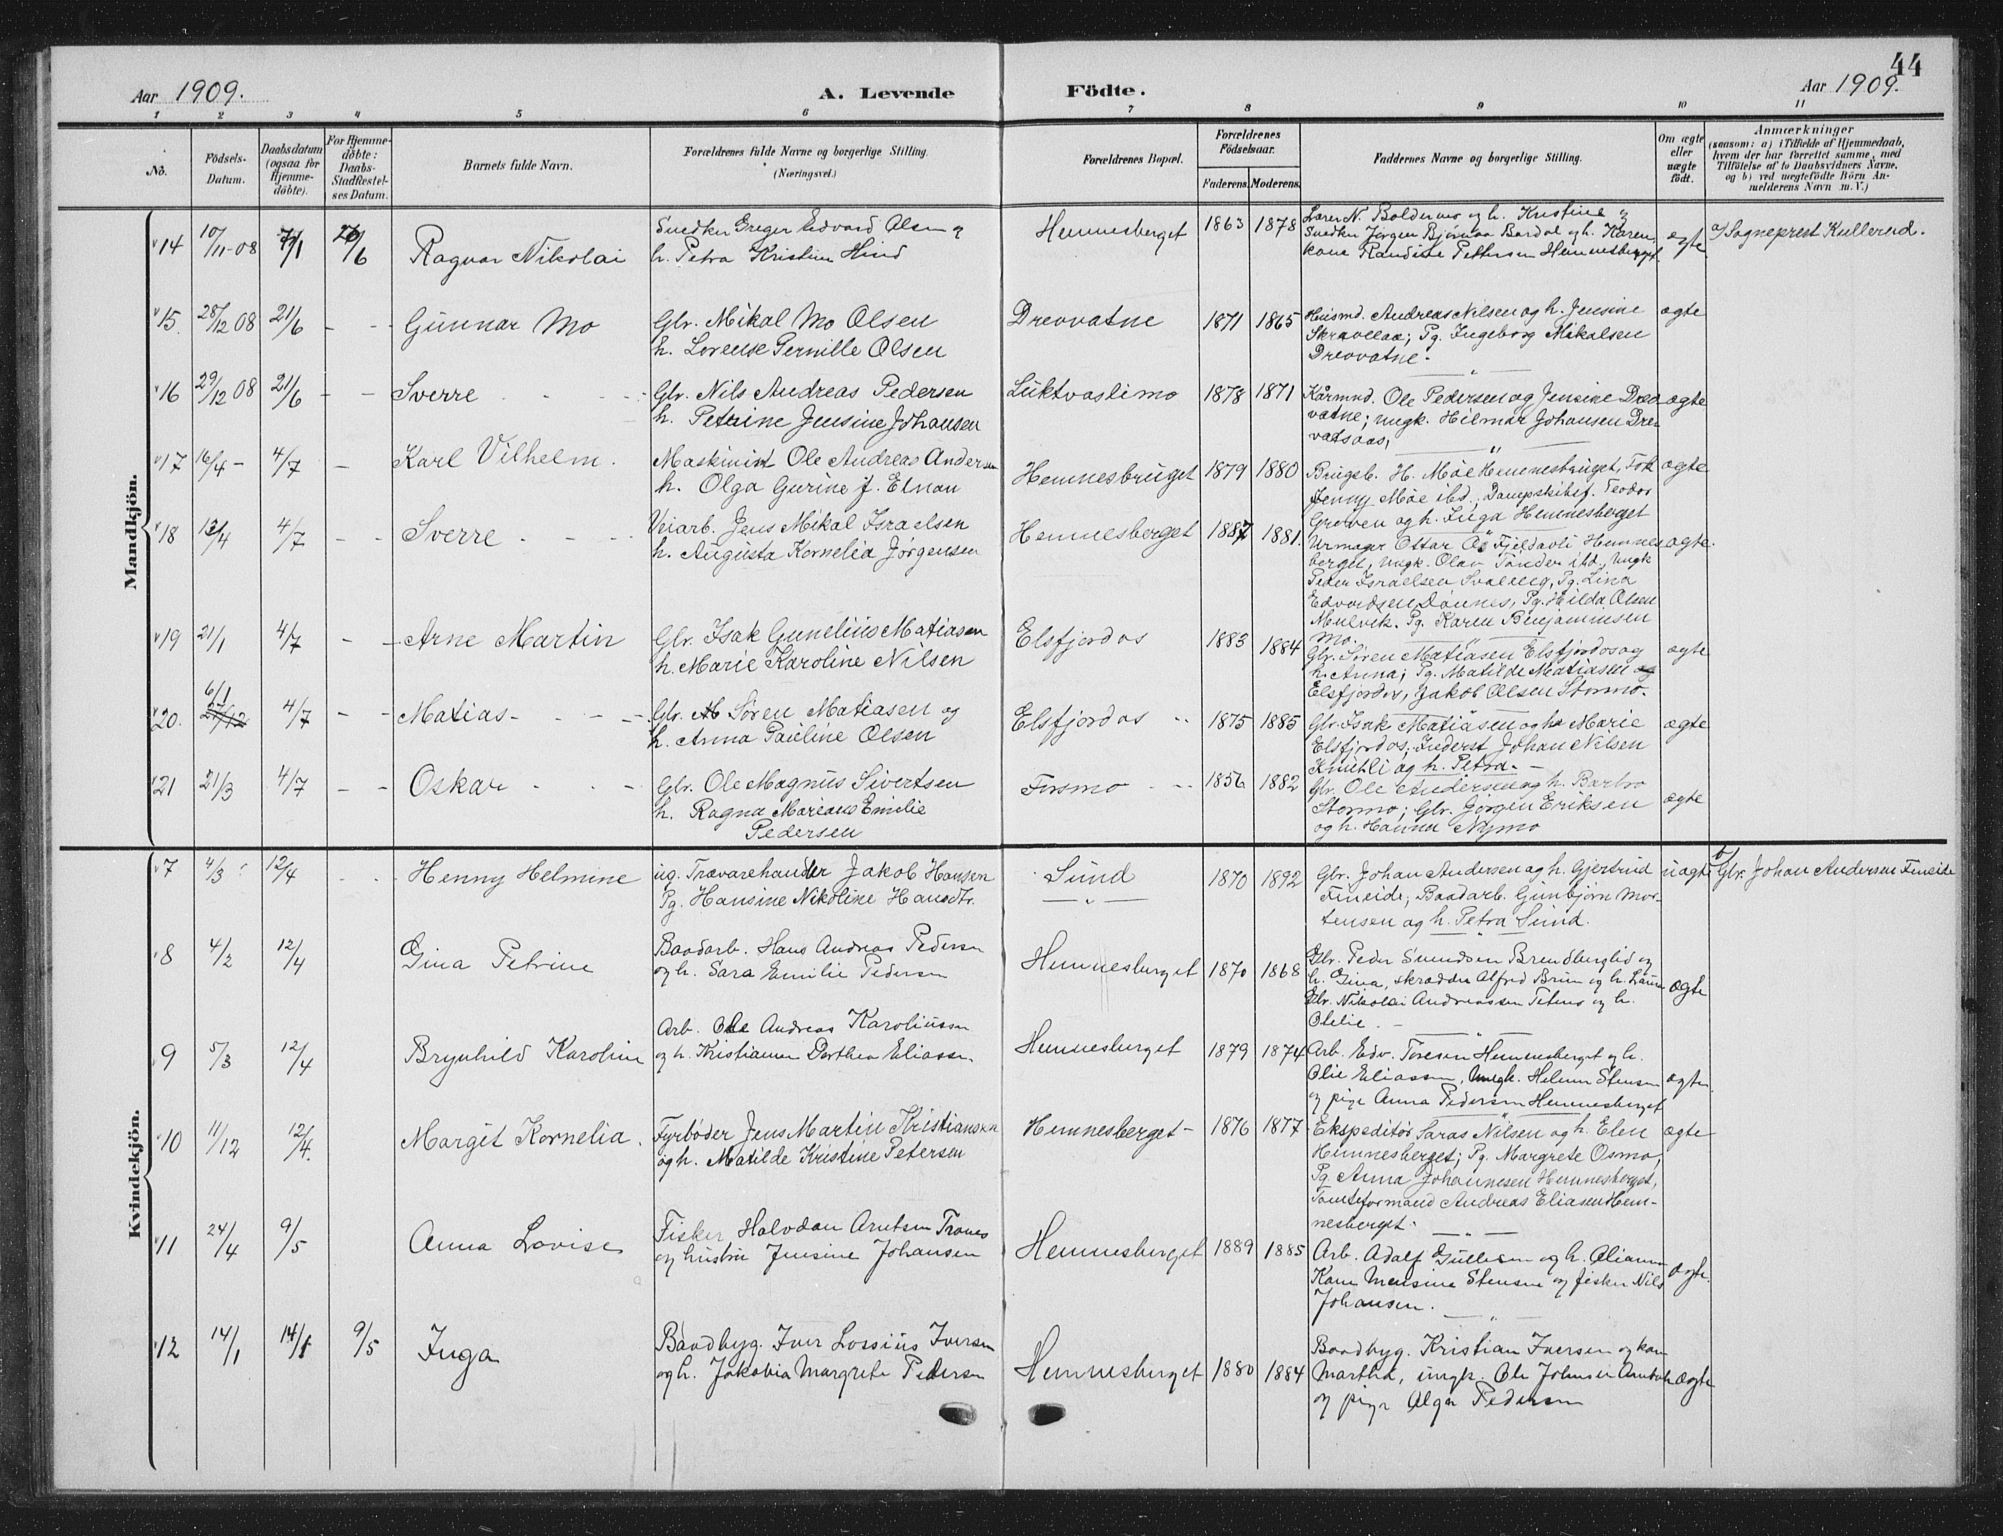 44
Aar 1909.
A. Levende
Födte.
Aar 1909.
1 2 3 4 5 6 7 8 9 10 11
No.
Födsels-
Datum.
Daabsdatum
(ogsaa for
Hjemme-
döbte).
For Hjemme-
döbte:
Daabs-
Stadfæstel-
ses Datum.
Barnets fulde Navn.
Forældrenes fulde Navne og borgerlige Stilling.
(Næringsvei.)
Forældrenes Bopæl.
Forældrenes
Födselsaar.
Faderens. Moderens.
Faddernes Navne og borgerlige Stilling.
Om ægte
eller
uægte
födt.
Anmærkninger
(saasom: a) i Tilfælde af Hjemmedaab,
hvem der har forrettet samme, med
Tilföielse af to Daabsvidners Navne,
og b) ved uægtefödte Börn An-
melderens Navn m. V.)
Mandkjön.
14 10/11-08 7/1 /6 Ragnar Nikolai
Snedker Greger Edvard Olsen og
h. Petra Kristine Hind
Hemnesberget 1863 1878
Lærer N. Boldermo og h. Kristine og
Snedker Jørgen Bjørnaa Bardal og h. Karen
kone Randine Pettersen Hemnesberget
ægte
a/ Sogneprest Kullerud.
15. 28/12 08 21/6 - - Gunnar Mo
Glr. Mikal Mo Olsen
h. Lorense Pernille Olsen
Drevvatne 1871 1865
Husmd. Andreas Nilsen og h. Jensine
Skravlaa; Pg. Ingeborg Mikalsen
Drevvatne.
ægte
16 29/12 08 21/6 - - Sverre
Glr. Nils Andreas Pedersen
h. Petrine Jensine Johansen
Luktvaslimo 1878 1871
Kårmnd. Ole Pedersen og Jensine Drev-
vatne; ungk. Hilmar Johansen Dre-
vatsaas,
ægte
17 16/4 - 4/7 - Karl Vilhelm.
Maskinist Ole Andreas Andersen
h. Olga Gurine f. Elnan
Hemnesbruget 1879 1880
Brugsb. H. Møe Hemnesbruget, Frk
Jenny Møe ibd., Dampskibsf. Teodor
Growen og h. Inga Hemnesberget
ægte
18 13/4 4/7 - - Sverre
Veiarb. Jens Mikal Israelsen
h. Augusta Kornelia Jørgensen
Hemnesberget 1887 1881.
Urmager Ottar Aa Fjeldavli Hemnes-
berget, ungk. Olav Tander ibd., ungk
Peder Israelsen Svaleng, Pg. Lina
Edvardsen Dønnes, Pg. Hilda Olsen
Mulvik. Pg. Karen Benjaminsen
Mo.
ægte.
19 21/1 4/7 - - Arne Martin
Glr. Isak Gunelius Matiasen
h. Marie Karoline Nilsen
Elsfjordos 1883 1884
Glr. Søren Matiasen Elsfjordos og
h. Anna; Pg. Matilde Matiasen
Elsfjordos, Jakob Olsen Stormo.
ægte
20. 6/1 4/7 - - Matias
Glr. Søren Matiasen og
h. Anna Pauline Olsen
Elsfjordos 1875 1885
Glr. Isak Matiasen og h. Marie
Elsfjordos; Inderst Johan Nilsen
Knutli og h. Petra.
ægte
21 21/3 4/7 - - Oskar
Glr. Ole Magnus Sivertsen
h. Ragna Mariane Emilie
Pedersen
Forsmo 1856 1882
Glr. Ole Andersen og h. Barbro
Stormo; Glr. Jørgen Eriksen
og h. Hanna Nymo
ægte
Kvindekjön.
7 4/3 12/4 Henny Helmine
ug. Trævarehandler Jakob Hansen
Pg. Hansine Nikoline Hansdtr.
Sund 1870 1892
Glr. Johan Andersen og h. Gjertrud
Fineide; Baadarb. Gunbjørn Mor-
tensen og h. Petra Sund.
uægte
b/ Glr. Johan Andersen Fineide
8 4/2 12/4 Gina Petrine
Baadarb. Hans Andreas Pedersen
og h. Sara Emilie Pedersen
Hemnesberget 1870 1868
Glr. Peder Simonsen Brendberglid og
h. Gina, skrædder Alfred Brun og h. Laura
Glr. Nikolai Andreassen og h.
Olelie.
ægte
9 5/3 12/4 Brynhild Karoline
Arb. Ole Andreas Karoliussen
og h. Kristianna Dorthea Eliassen
Hemnesberget 1879 1874
Arb. Edv. Toresen Hemnesberget og h.
Olie Eliassen, ungk. Helmer Stensen
og pige Anna Pedersen Hemnesberget
ægte
10 11/12 12/4. Margit Kornelia.
Fyrbøder Jens Martin Kristiansen
og h. Matilde Kristine Petersen
Hemnesberget- 1876 1877
Ekspeditør Saras Nilsen og h. Elen
Hemnesberget; Pg. Margrete Osmo,
Pg Anna Johannesen Hemnesberget,
Tomteformand Andreas Eliasen Hem-
nesberget.
ægte
11 24/4 9/5 Anna Lovise
Fisker Halvdan Arntsen Tranes
og hustru Jensine Johansen
Hemnesberget 1889 1885
Arb. Adolf Gullesen og h. Olianna
Kone Mensine Stensen og fisker Nils
Johansen.
ægte.
12 14/1 14/1 9/5 Inga
Baadbyg. Iver Lossius Iversen
og h. Jakobia Margrete Pedersen
Hemnesberget 1880 1884
Baadbyg. Kristian Iversen og kone
Martha, ungk. Ole Johnsen
og pige Olga Pedersen
ægte